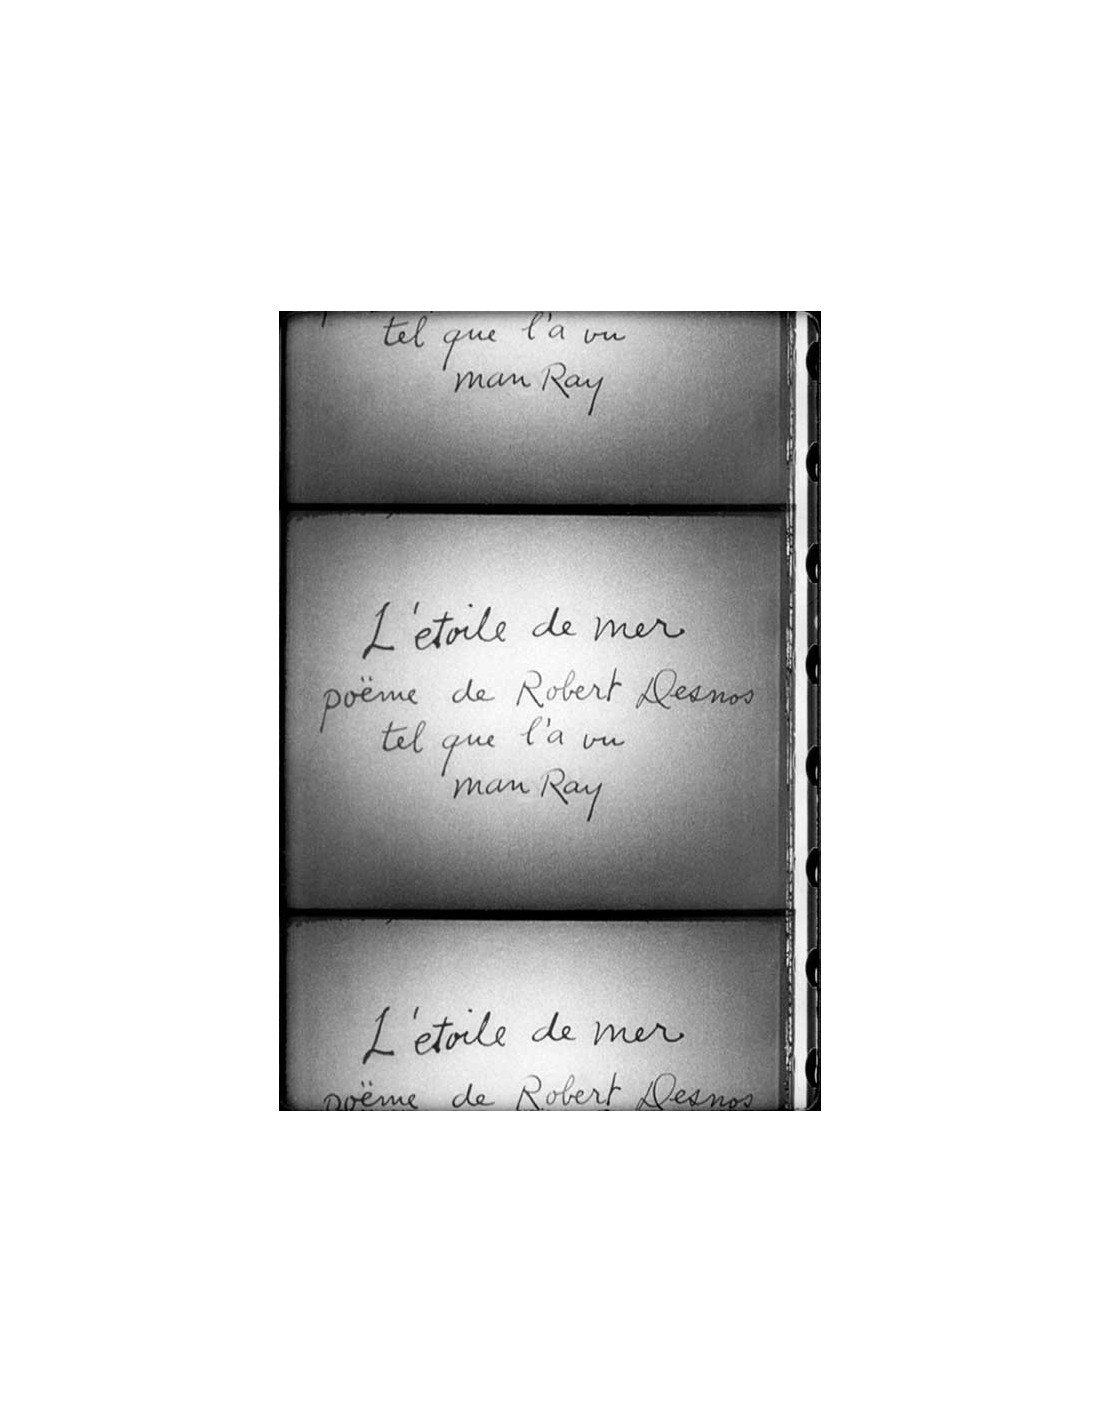 tel que l'a vu
man Ray
L'étoile de mer
poëme de Robert Desnos
tel que l'a vu
man Ray
L'étoile de mer
poëme de Robert Desnos